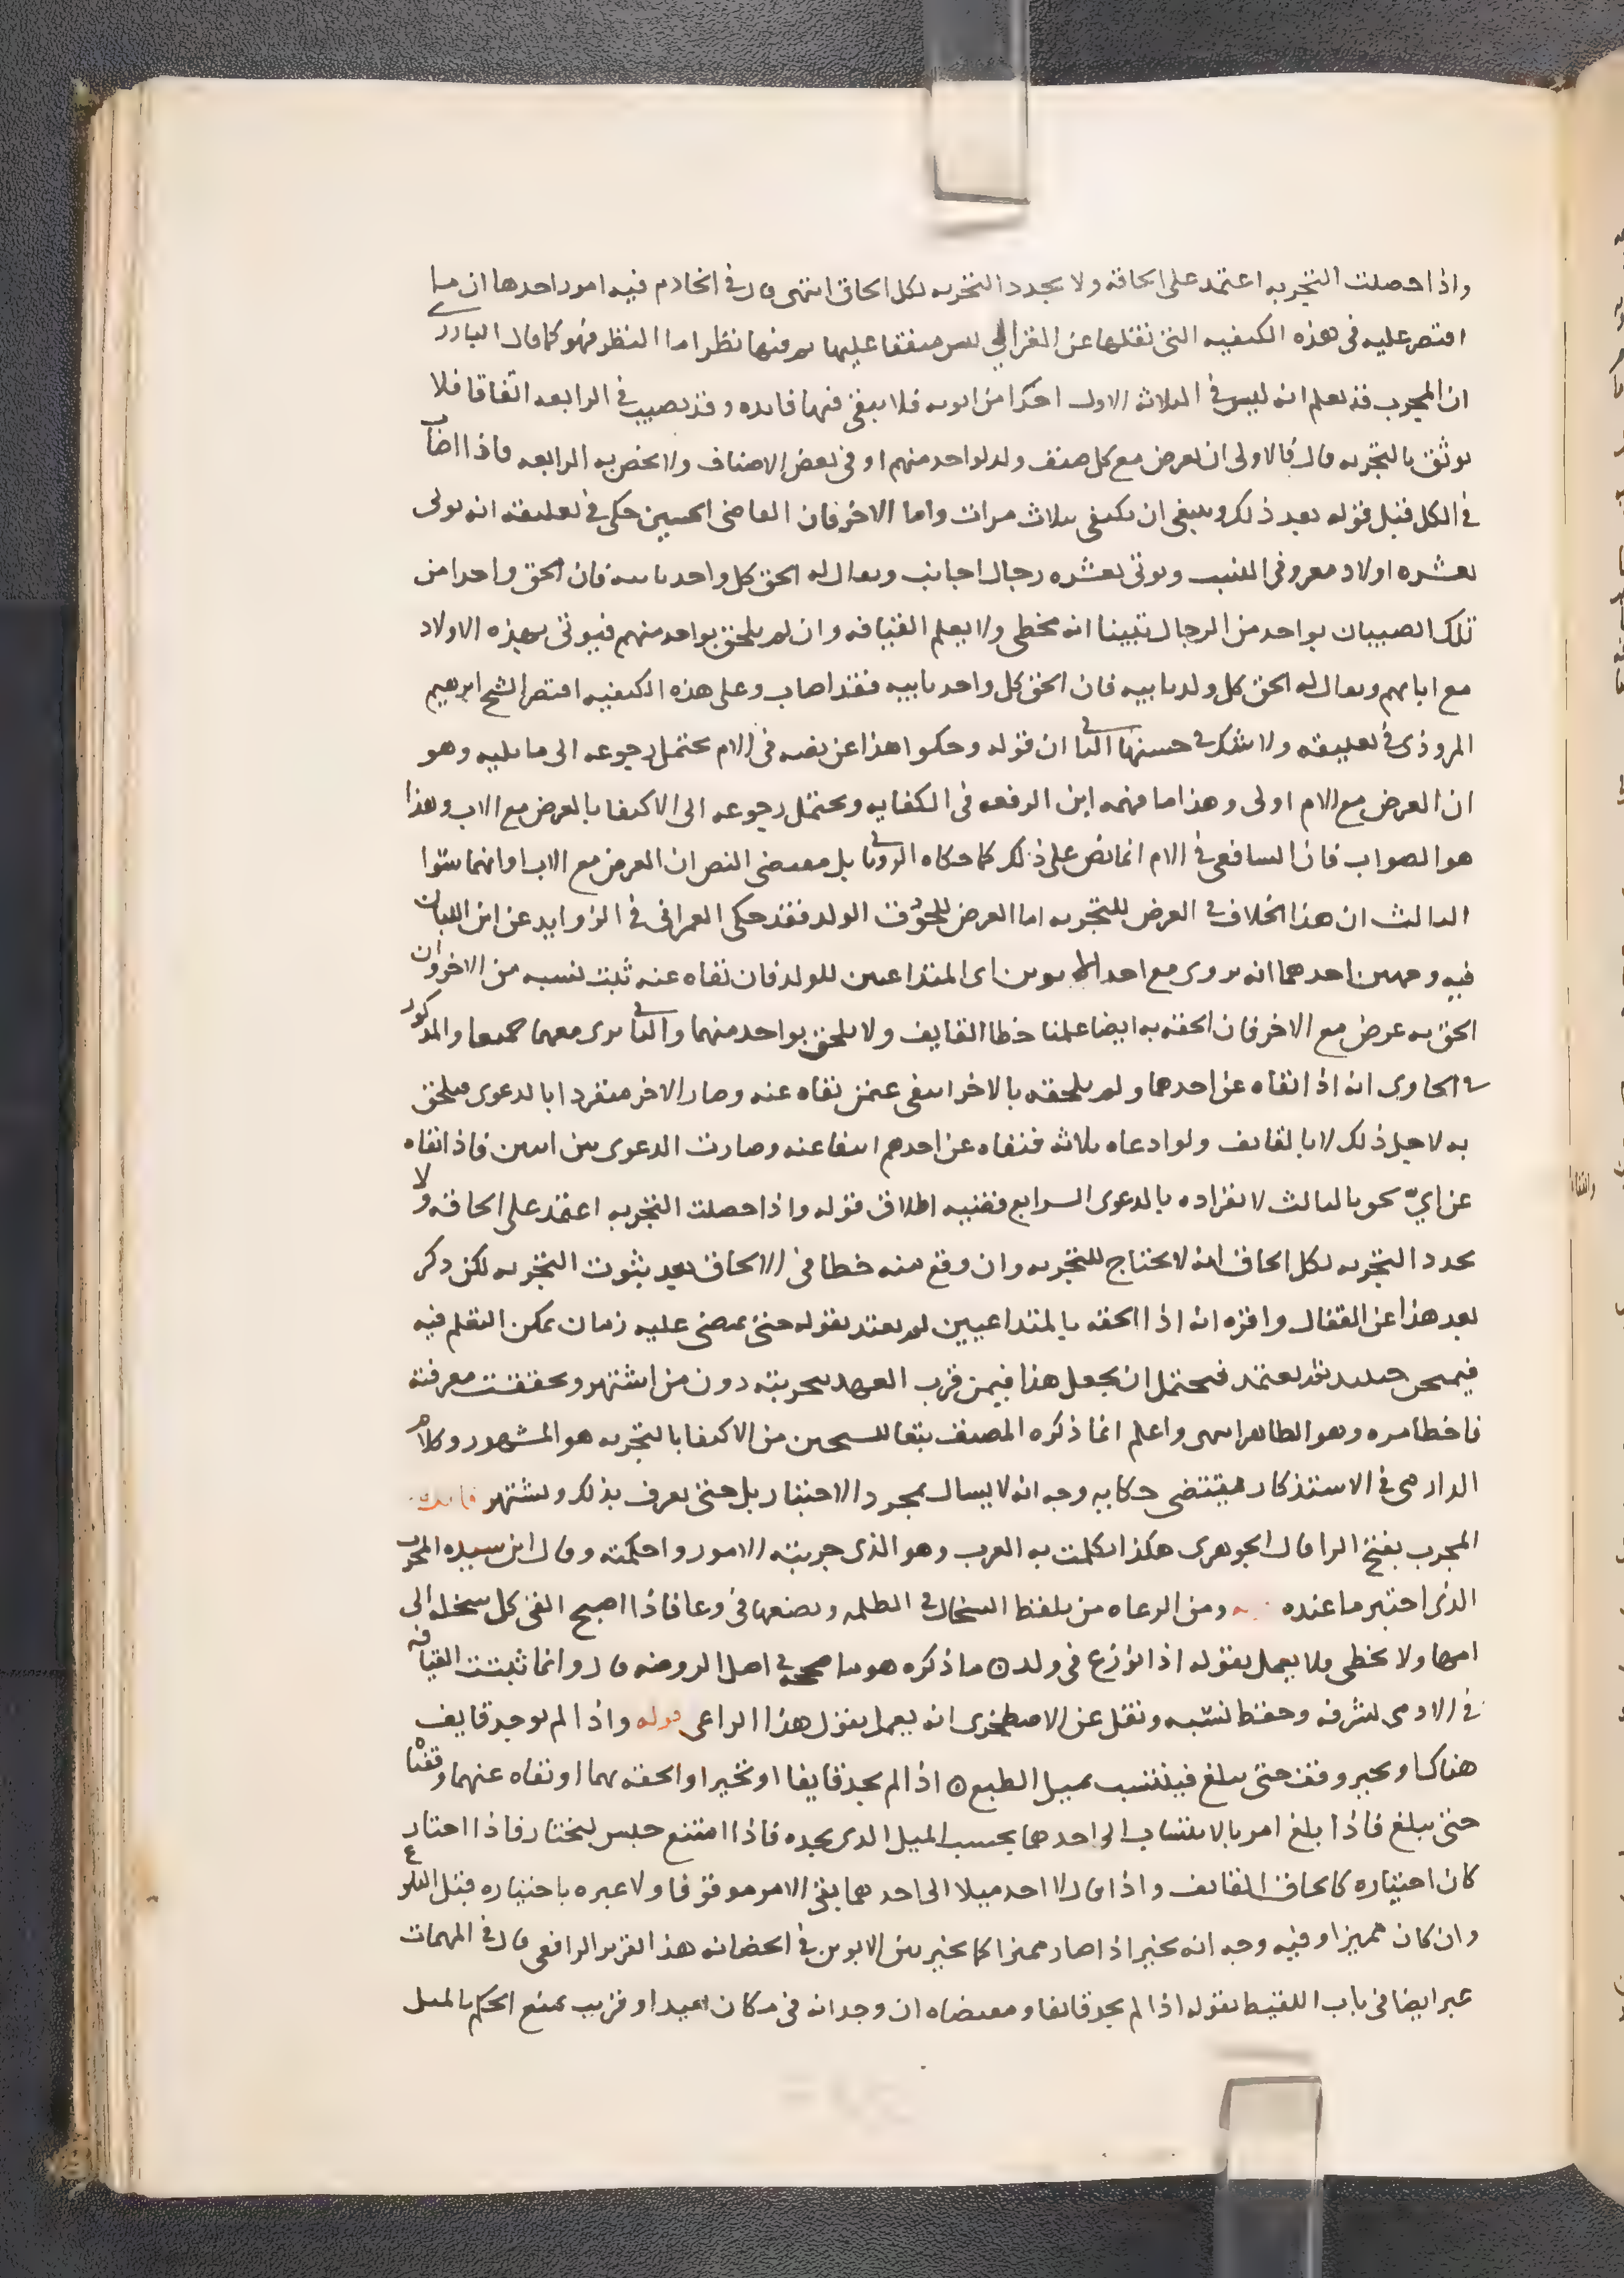 واذا حصلت التجربه اعتمد على الحاقه ولا يجدد التجربه لكل الحاق انتهى قال في الخادم فيه امور احدها ان ما
اقتصر عليه في هذه الكيفيه التي نقلها عن الغزالي ليس متفقا عليها ثم فيها نظر اما النظر فهو كما قال البارزي
ان المجرب قد يعلم انه ليس في الثلاثه الاول احدا من ابويه فلا يبقى فيها فايده وقد يصيب في الرابعه اتفاقا فلا
يوثق بالتجربه قال فالاولى ان يعرض مع كل صنف ولد لواحد منهم او في بعض الاصناف ولا يخص به الرابعه فاذا اصاب
في الكل قبل قوله بعد ذلك وينبغي ان يكتفي بثلاث مرات واما الاخر فان القاضي الحسين حكى في تعليقه انه يولى
بعشره اولاد معروفي النسب ويوتى بعشره رجال اجانب ويقال له الحق كل واحد بابيه فان الحق واحدا من
تلك الصبيان بواحد من الرجال تبينا انه مخطي ولا يعلم القيافه وان لم يلحق بواحد منهم فيوتى بهذه الاولاد
مع ابايهم ويقال له الحق كل ولد بابيه فان الحق كل واحد بابيه فقد اصاب وعلى هذه الكيفيه اقتصر الشيخ ابرهيم
المروذي في تعليقه ولا شك في حسنها الثاني ان قوله وحكوا هذا عن نصه في الام يحتمل رجوعه الى ما يليه وهو
ان العرض مع الام اولى وهذا ما فهمه ابن الرفعه في الكفايه ويحتمل رجوعه الى الاكتفا بالعرض مع الاب وهذا
هو الصواب فان الشافعي في الام انما نص على ذلك كما حكاه الروياني بل مقتضى النص ان العرض مع الاب او امهما سوا
الثالث ان هذا الخلاف في العرض للتجربه اما العرض للحوق الولد فقد حكى العمراني في الزوايد عن ابن اللبان
فيه وجهين احدهما انه يرى مع احد الابوين اى المتداعيين للولد فان نفاه عنه ثبت نسبه من الاخر وان
الحق به عرض مع الاخر فان الحقه به ايضا علمنا خطا القايف ولا يلحق بواحد منهما والثاني يرى معهما جميعا والمذكور
في الحاوى انه اذا نفاه عن احدهما ولم يلحقه بالاخر انتفى عمن نفاه عنه وصار الاخر منفردا بالدعوى فيلحق
به لاجل ذلك لا بالقايف ولو ادعاه ثلاثه فنفاه عن احدهم انتفا عنه وصارت الدعوى بين اثنين فاذا نفاه
عن اي لحق بالثالث لانفراده بالدعوى الرابع قضيه اطلاق قوله واذا حصلت التجربه اعتمد على الحاقه ولا
يجدد التجربه لكل الحاق انه لا يحتاج للتجربه وان وقع منه خطا في الالحاق بعد ثبوت التجربه لكن ذكر
بعد هذا عن القفال واقره انه اذا الحقه بالمتداعيين لم يعتد بقوله حتى يمضي عليه زمان يمكن التعلم فيه
فيمتحن حينيذ ثم يعتمد فيحتمل ان يجعل هذا فيمن قرب العهد بتجربته دون من اشتهر وتحققت معرفته
فاخطا مره وهو الظاهر انتهى واعلم انما ذكره المصنف تبعا للشيخين من الاكتفا بالتجربه هو المشهور وكلام
الدارمي في الاستذكار يقتضي حكايه وجه انه لا يسال بمجرد الاختبار بل حتى يعرف بذلك ويشتهر فايده
المجرب بفتح الرا قال الجوهرى هكذا تكلمت به العرب وهو الذى جربته الامور واحكمته وقال ابن سيده المجرب
الذى اختبر ما عنده ومن الرعاه من يلقط السخال في الظلمه ويضعها في وعا فاذا اصبح القى كل سخله الى
امها ولا يخطي ولا يعمل بقوله اذا تنوزع في ولد ه ما ذكره هو ما صححه في اصل الروضه قال وانما ثبتت القيافه
في الادمي لشرفه وحفظ نسبه ونقل عن الاصطخرى انه يعمل بقول هذا الراعي قوله واذا لم يوجد قايف
هناك او تحير وقف حتى يبلغ فينتسب بميل الطبع ه اذا لم يجد قايفا او تحير او الحقه بهما او نفاه عنهما وقفنا
حتى يبلغ فاذا بلغ امر بالانتساب الى احدهما بحسب الميل الذى يجده فاذا امتنع حبس ليختار فاذا اختار
كان اختياره كالحاق القايف واذا قال لا اجد ميلا الى احدهما بقي الامر موقوفا ولا عبره باختياره قبل البلوغ
وان كان مميزا وفيه وجه انه يخير اذا صار مميزا كما يخير بين الابوين في الحضانه هذا تقرير الرافعي قال في المهمات
عبر ايضا في باب اللقيط بقوله اذا لم يجد قايفا ومقتضاه ان وجدانه في مكان بعيد او قريب يمنع الحكم بالميل